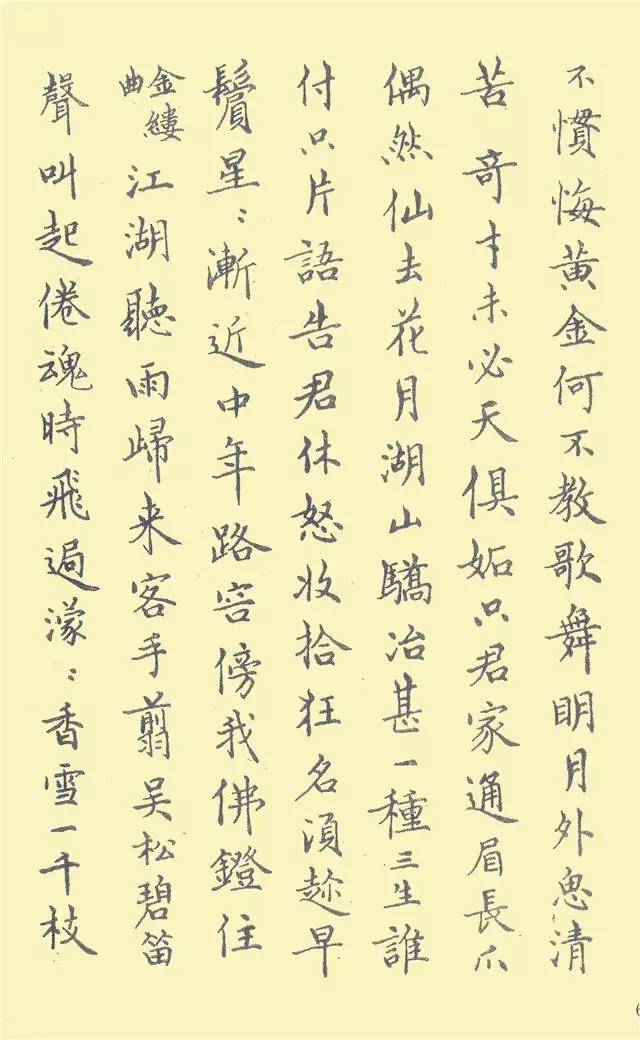 不慣悔黄金何不教歌舞明月外思清
苦奇才未必天俱妬只君家通眉長爪
偶然仙去花月湖山驕冶甚一種三生誰
付只片語告君休怒收拾狂名須趂早
鬢星〻漸近中年路容傍我佛鐙住
金縷曲江湖聽雨歸来客手翦吴松碧笛
聲叫起倦魂時飛過濛〻香雪一千枝